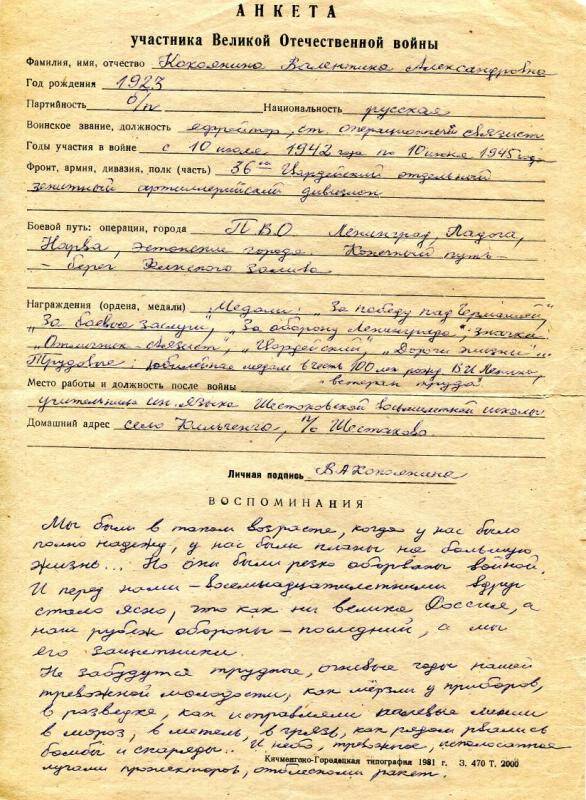 АНКЕТА
участника Великой Отечественной войны
Фамилия, имя, отчество Кокоянина Валентина Александровна
Год рождения 1923
Партийность б/п Национальность русская
Воинское звание, должность ефрейтор, ст. операционный связист
Годы участия в войне с 10 июля 1942 года по 10 июня 1945 года
Фронт, армия, дивизия, полк (часть) 36ой Гвардейский отдельный
зенитный артиллерийский дивизион
Боевой путь: операции, города ПВО Ленинград, Ладога,
Нарва, эстонские города. Конечный путь –
– берег Финского залива
Награждения (ордена, медали) „Медали: „За победу над Германией",
„За боевые заслуги", „За оборону Ленинграда"; значки
„Отличник-связист", „Гвардейский", „Дороги жизни"...
Трудовые: юбилейная медаль в честь 100 лет рожд. В И Ленина,
Место работы и должность после войны „ветеран труда"
учительница ин. языка Шестаковской восьмилетней школы
Домашний адрес село Кильченга, п/о Шестаково
Личная подпись ВАКокоянина
ВОСПОМИНАНИЯ
Мы были в таком возрасте, когда у нас было
полно надежд, у нас были планы на большую
жизнь... Но они были резко оборваны войной.
И перед нами – восемнадцатилетними вдруг
стало ясно, что как ни велика Россия, а
наш рубеж обороны – последний, а мы
его защитники.
Не забудутся трудные, огневые годы нашей
тревожной молодости, как мёрзли у приборов,
в разведке, как исправляли полевые линии
в мороз, в метель, в грязь, как рядом рвались
бомбы и снаряды... И небо, тревожное, исполосанное
лучами прожекторов, отблесками ракет.
Кичменгско-Городецкая типография 1981 г. З. 470 Т. 2000